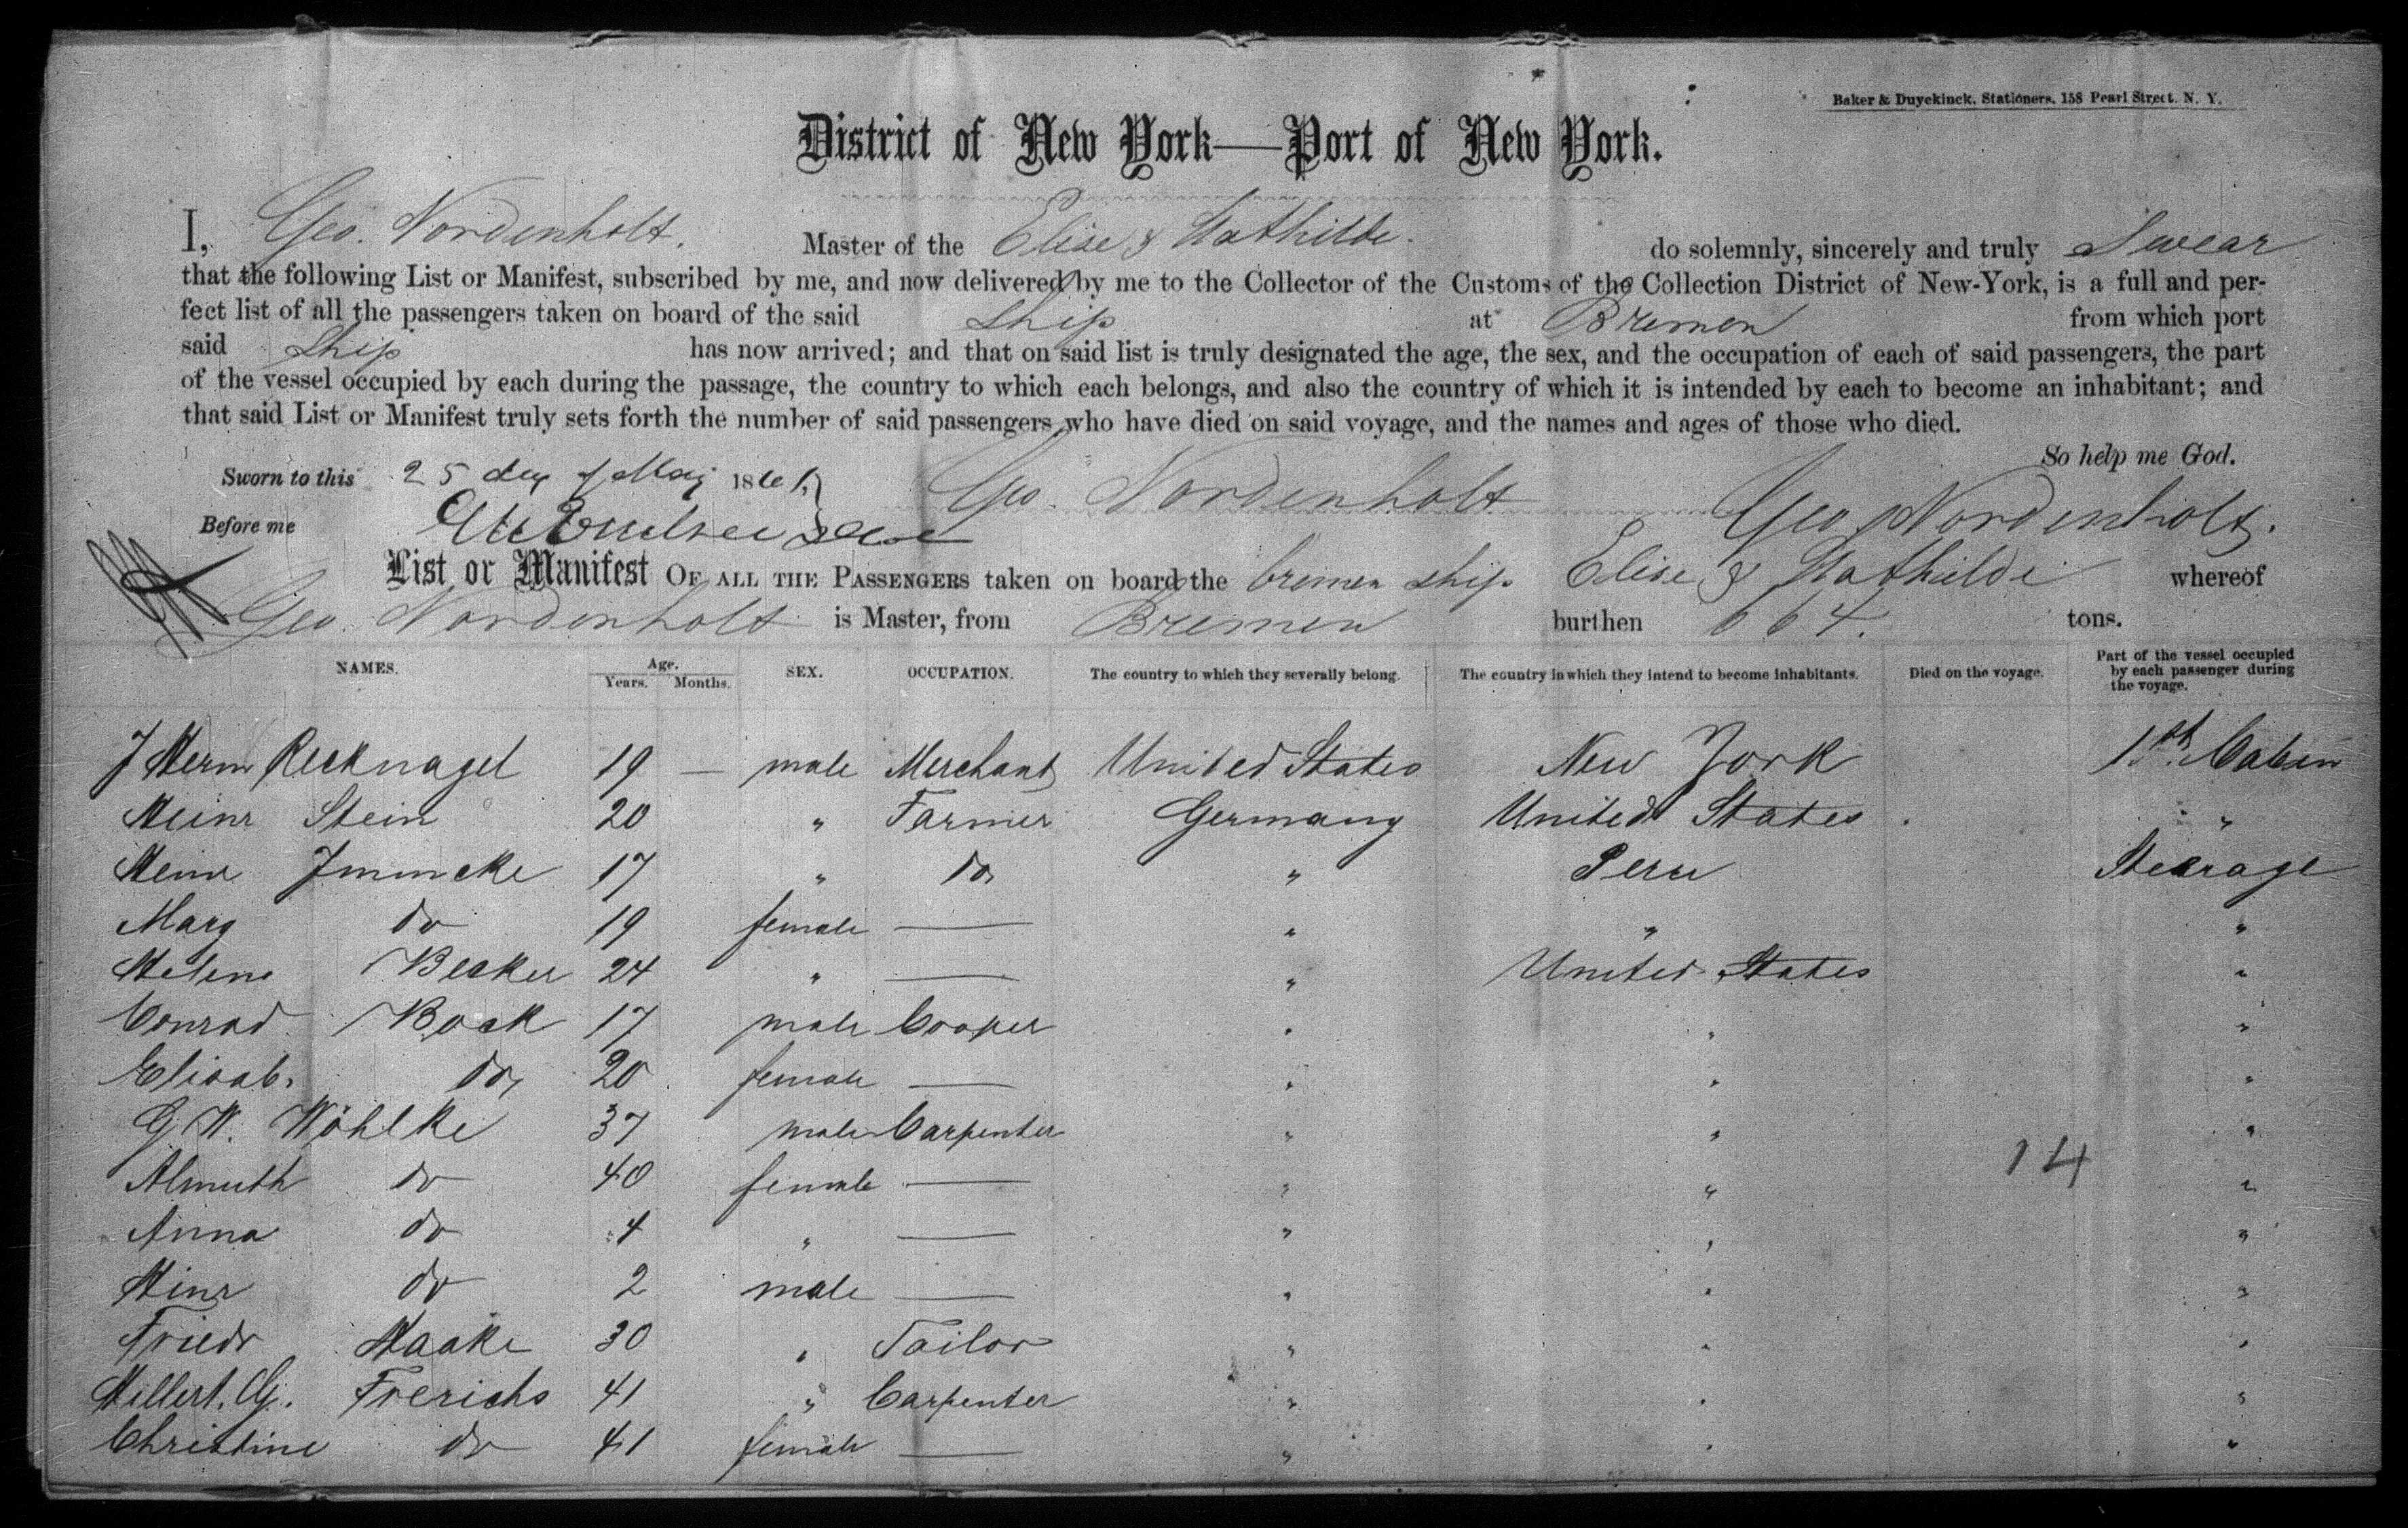 Baker & Duyckinck, Stationers, 158 Pearl Street. N. Y.
District of New York—Port of New York.
I, Geo. Nordenholt. Master of the Elise & Mathilde. do solemnly, sincerely and truly Swear
that the following List or Manifest, subscribed by me, and now delivered by me to the Collector of the Customs of the Collection District of New-York, is a full and per-
fect list of all the passengers taken on board of the said Ship at Bremen from which port
said Ship has now arrived; and that on said list is truly designated the age, the sex, and the occupation of each of said passengers, the part
of the vessel occupied by each during the passage, the country to which each belongs, and also the country of which it is intended by each to become an inhabitant; and
that said List or Manifest truly sets forth the number of said passengers who have died on said voyage, and the names and ages of those who died.
So help me God.
Sworn to this 25 day of May 1861, Geo. Nordenholt Geo Nordenholt.
Before me
List or Manifest OF ALL THE PASSENGERS taken on board the bremen ship Elise & Mathilde whereof
Geo. Nordenholt is Master, from Bremen burthen 664. tons.
NAMES. Age. Years. Months. SEX. OCCUPATION. The country to which they severally belong. The country in which they intend to become inhabitants. Died on the voyage. Part of the vessel occupied by each passenger during the voyage.
J Herm Recknagel 19 — male Merchant United States New York 1st. Cabin
Heinr Stein 20 " Farmer Germany United States. "
Heinr Immcke 17 " do " Peru Stearage
Marg do 19 female — " " "
Helene Becker 24 " — " United States "
Conrad Bock 17 male Cooper " " "
Elisab. do, 20 female — " " "
G W. Wöhlke 37 male Carpenter " " "
14
Almuth do 40 female — " " "
Anna do 4 " — " " "
Hinr do 2 male — " " "
Friedr Haake 30 " Tailor " " "
Hillert. G. Frerichs 41 " Carpenter " " "
Christine do 41 female — " " "